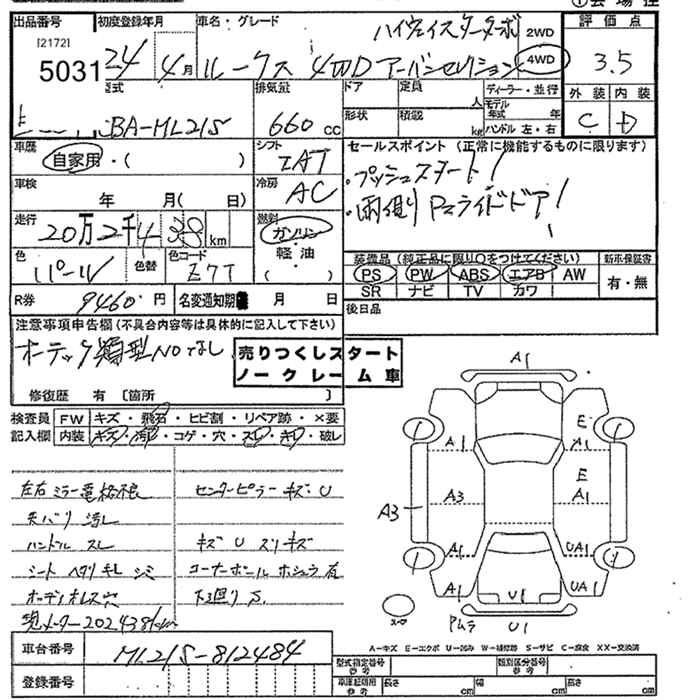 ①会場控
出品番号 初度登録年月 車名・グレード 評価点
[2172]
5031
24 4月 ルークス 4WD アーバンセレクション
ハイウェイスターターボ
2WD
4WD
3.5
型式 排気量 ドア 定員 人 ディーラー・並行
CBA-ML21S 660cc 形状 積載 kg モデル年式 年
ハンドル 左・右
外装 内装
C D
車歴 自家用・( )
シフト IAT
セールスポイント (正常に機能するものに限ります)
・プッシュスタート!
・両側Pスライドドア!
車検 年 月( 日)
冷房 AC
走行 20万2千4 km
燃料 ガソリン・軽油 ( )
色 パール 色替 色コード Z7T
装備品 (純正品に限り○をつけてください) 新車保証書
PS PW ABS エアB AW
SR ナビ TV カワ
有・無
R券 9460円 名変通知期 月 日
後日品
注意事項申告欄 (不具合内容等は具体的に記入して下さい)
オーテック 類型Noなし
売りつくしスタート
ノークレーム車
修復歴 有 [箇所 ]
検査員記入欄
FW キズ・飛石・ヒビ割・リペア跡・×要
内装 キズ・汚・コゲ・穴・スレ・キレ・破レ
左右ミラー電格不良 センターピラー キズ・U
天バリ 汚レ
ハンドル スレ キズ U スリキズ
シート ヘタリ キレ シミ コーナーポール ホジュラ有
オーディオレス穴 下廻り S
現メーター202438km
A1
A1 E
A3 A3 E A1
A1 UA1
A1 U1 UA1
スペア
U1
A-キズ E-エクボ U-凹み W-補修跡 S-サビ C-腐食 XX-交換済
車台番号 ML21S-812484
登録番号
型式指定番号 参考 類別区分番号 参考
車庫証明用 参考 長さ cm 幅 cm 高さ cm